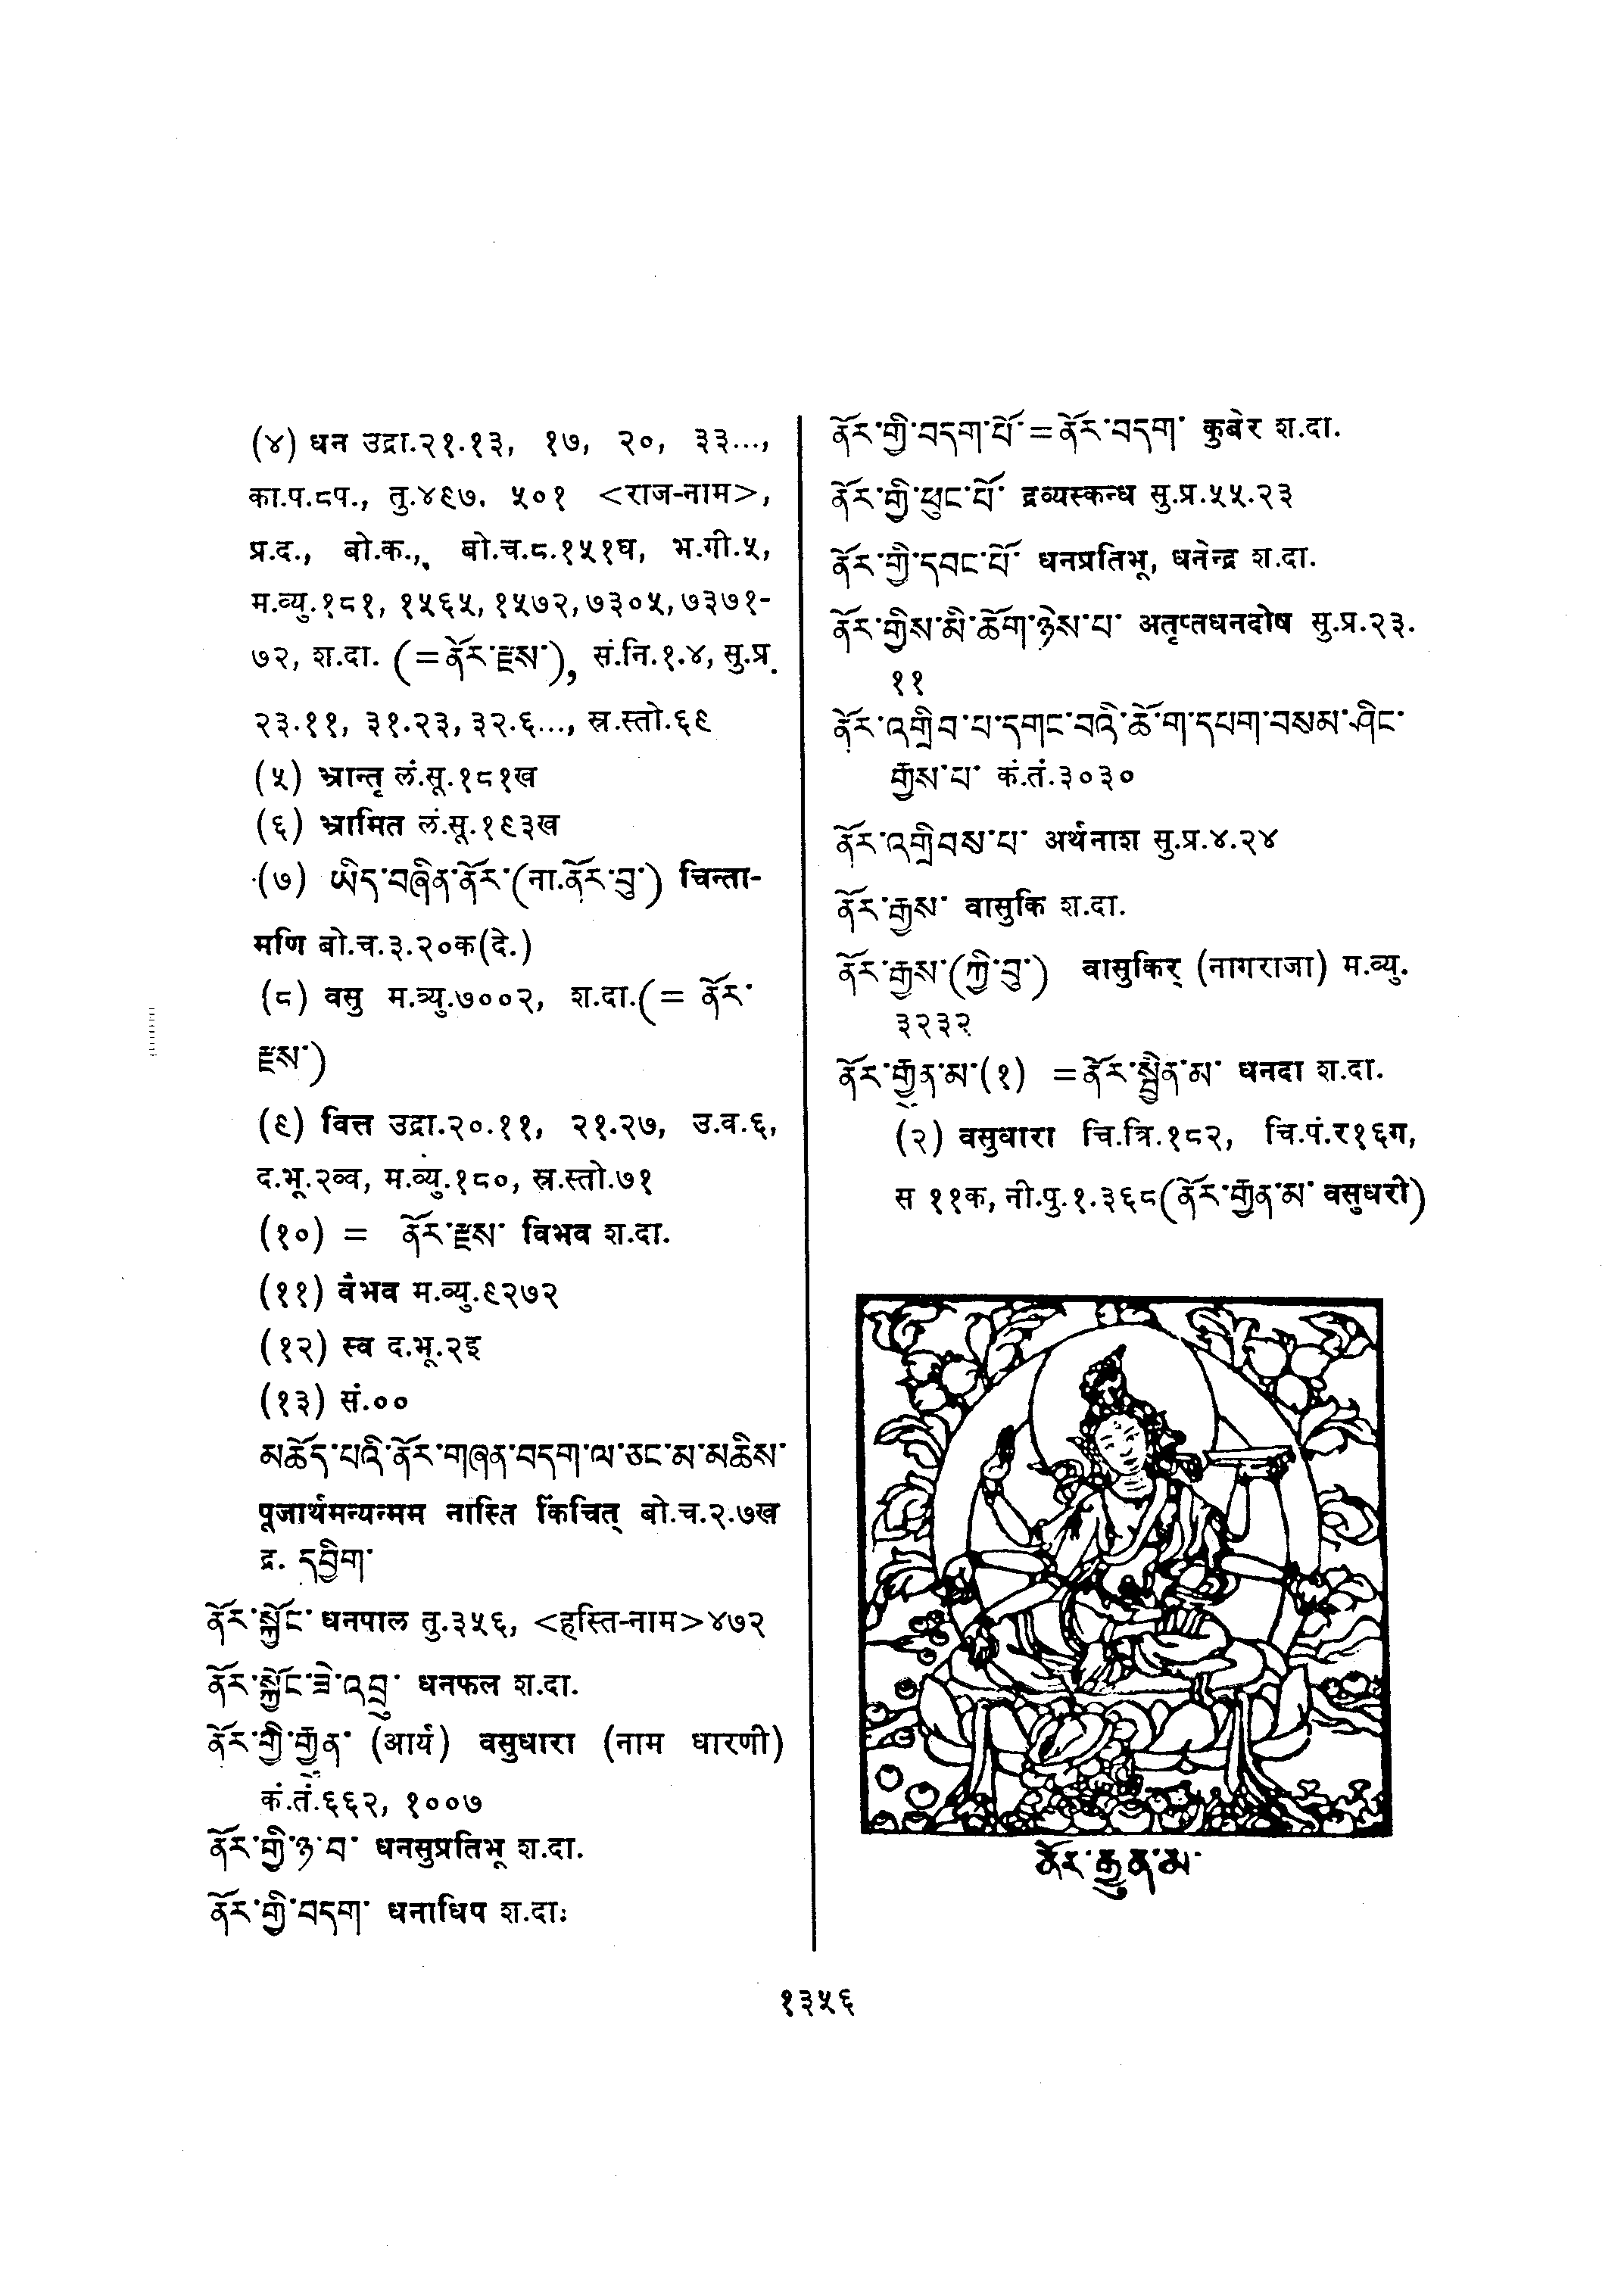 (४) धन उद्रा.२१.१३, १७, २०, ३३...,
का.प.८प., तु.४९७. ५०१ <राज-नाम>,
प्र.द., बो.क., बो.च.८.१५१घ, भ.गी.५,
म.व्यु.१८१, १५६५, १५७२, ७३०५, ७३७१-
७२, श.दा. (=ནོར་རྫས་), सं.नि.१.४, सु.प्र.
२३.११, ३१.२३, ३२.६..., स्र.स्तो.६९
(५) भ्रान्तृ लं.सू.१८१ख
(६) भ्रामित लं.सू.१९३ख
(७) ཡིད་བཞིན་ནོར་(ना.ནོར་བུ་) चिन्ता-
मणि बो.च.३.२०क(दे.)
(८) वसु म.व्यु.७००२, श.दा.(= ནོར་
རྫས་)
(९) वित्त उद्रा.२०.११, २१.२७, उ.व.६,
द.भू.२व्व, म.व्यु.१८०, स्र.स्तो.७१
(१०) = ནོར་རྫས་ विभव श.दा.
(११) वैभव म.व्यु.९२७२
(१२) स्व द.भू.२इ
(१३) सं.००
མཆོད་པའི་ནོར་གཞན་བདག་ལ་ཅང་མ་མཆིས་
पूजार्थमन्यन्मम नास्ति किंचित् बो.च.२.७ख
द्र. དབྱིག་
ནོར་སྐྱོང་ धनपाल तु.३५६, <हस्ति-नाम>४७२
ནོར་སྐྱོང་ཟེ་འབྲུ་ धनफल श.दा.
ནོར་གྱི་རྒྱུན་ (आर्य) वसुधारा (नाम धारणी)
कं.तं.६६२, १००७
ནོར་གྱི་ཉེ་བ་ धनसुप्रतिभू श.दा.
ནོར་གྱི་བདག་ धनाधिप श.दा.
ནོར་གྱི་བདག་པོ་=ནོར་བདག་ कुबेर श.दा.
ནོར་གྱི་ཕུང་པོ་ द्रव्यस्कन्ध सु.प्र.५५.२३
ནོར་གྱི་དབང་པོ་ धनप्रतिभू, धनेन्द्र श.दा.
ནོར་གྱིས་མི་ཆོག་ཉེས་པ་ अतृप्तधनदोष सु.प्र.२३.
११
ནོར་འགྲིབ་པ་དགང་བའི་ཆོ་ག་དཔག་བསམ་ཤིང་
རྒྱས་པ་ कं.तं.३०३०
ནོར་འགྲིབས་པ་ अर्थनाश सु.प्र.४.२४
ནོར་རྒྱས་ वासुकि श.दा.
ནོར་རྒྱས་(ཀྱི་བུ་) वासुकिर् (नागराजा) म.व्यु.
३२३२
ནོར་རྒྱུན་མ་(१) =ནོར་སྦྱིན་མ་ धनदा श.दा.
(२) वसुधारा चि.त्रि.१८२, चि.पं.र१६ग,
स ११क, नी.पु.१.३६८(ནོར་རྒྱུན་མ་ वसुधरी)
ནོར་རྒྱུན་མ་
१३५६